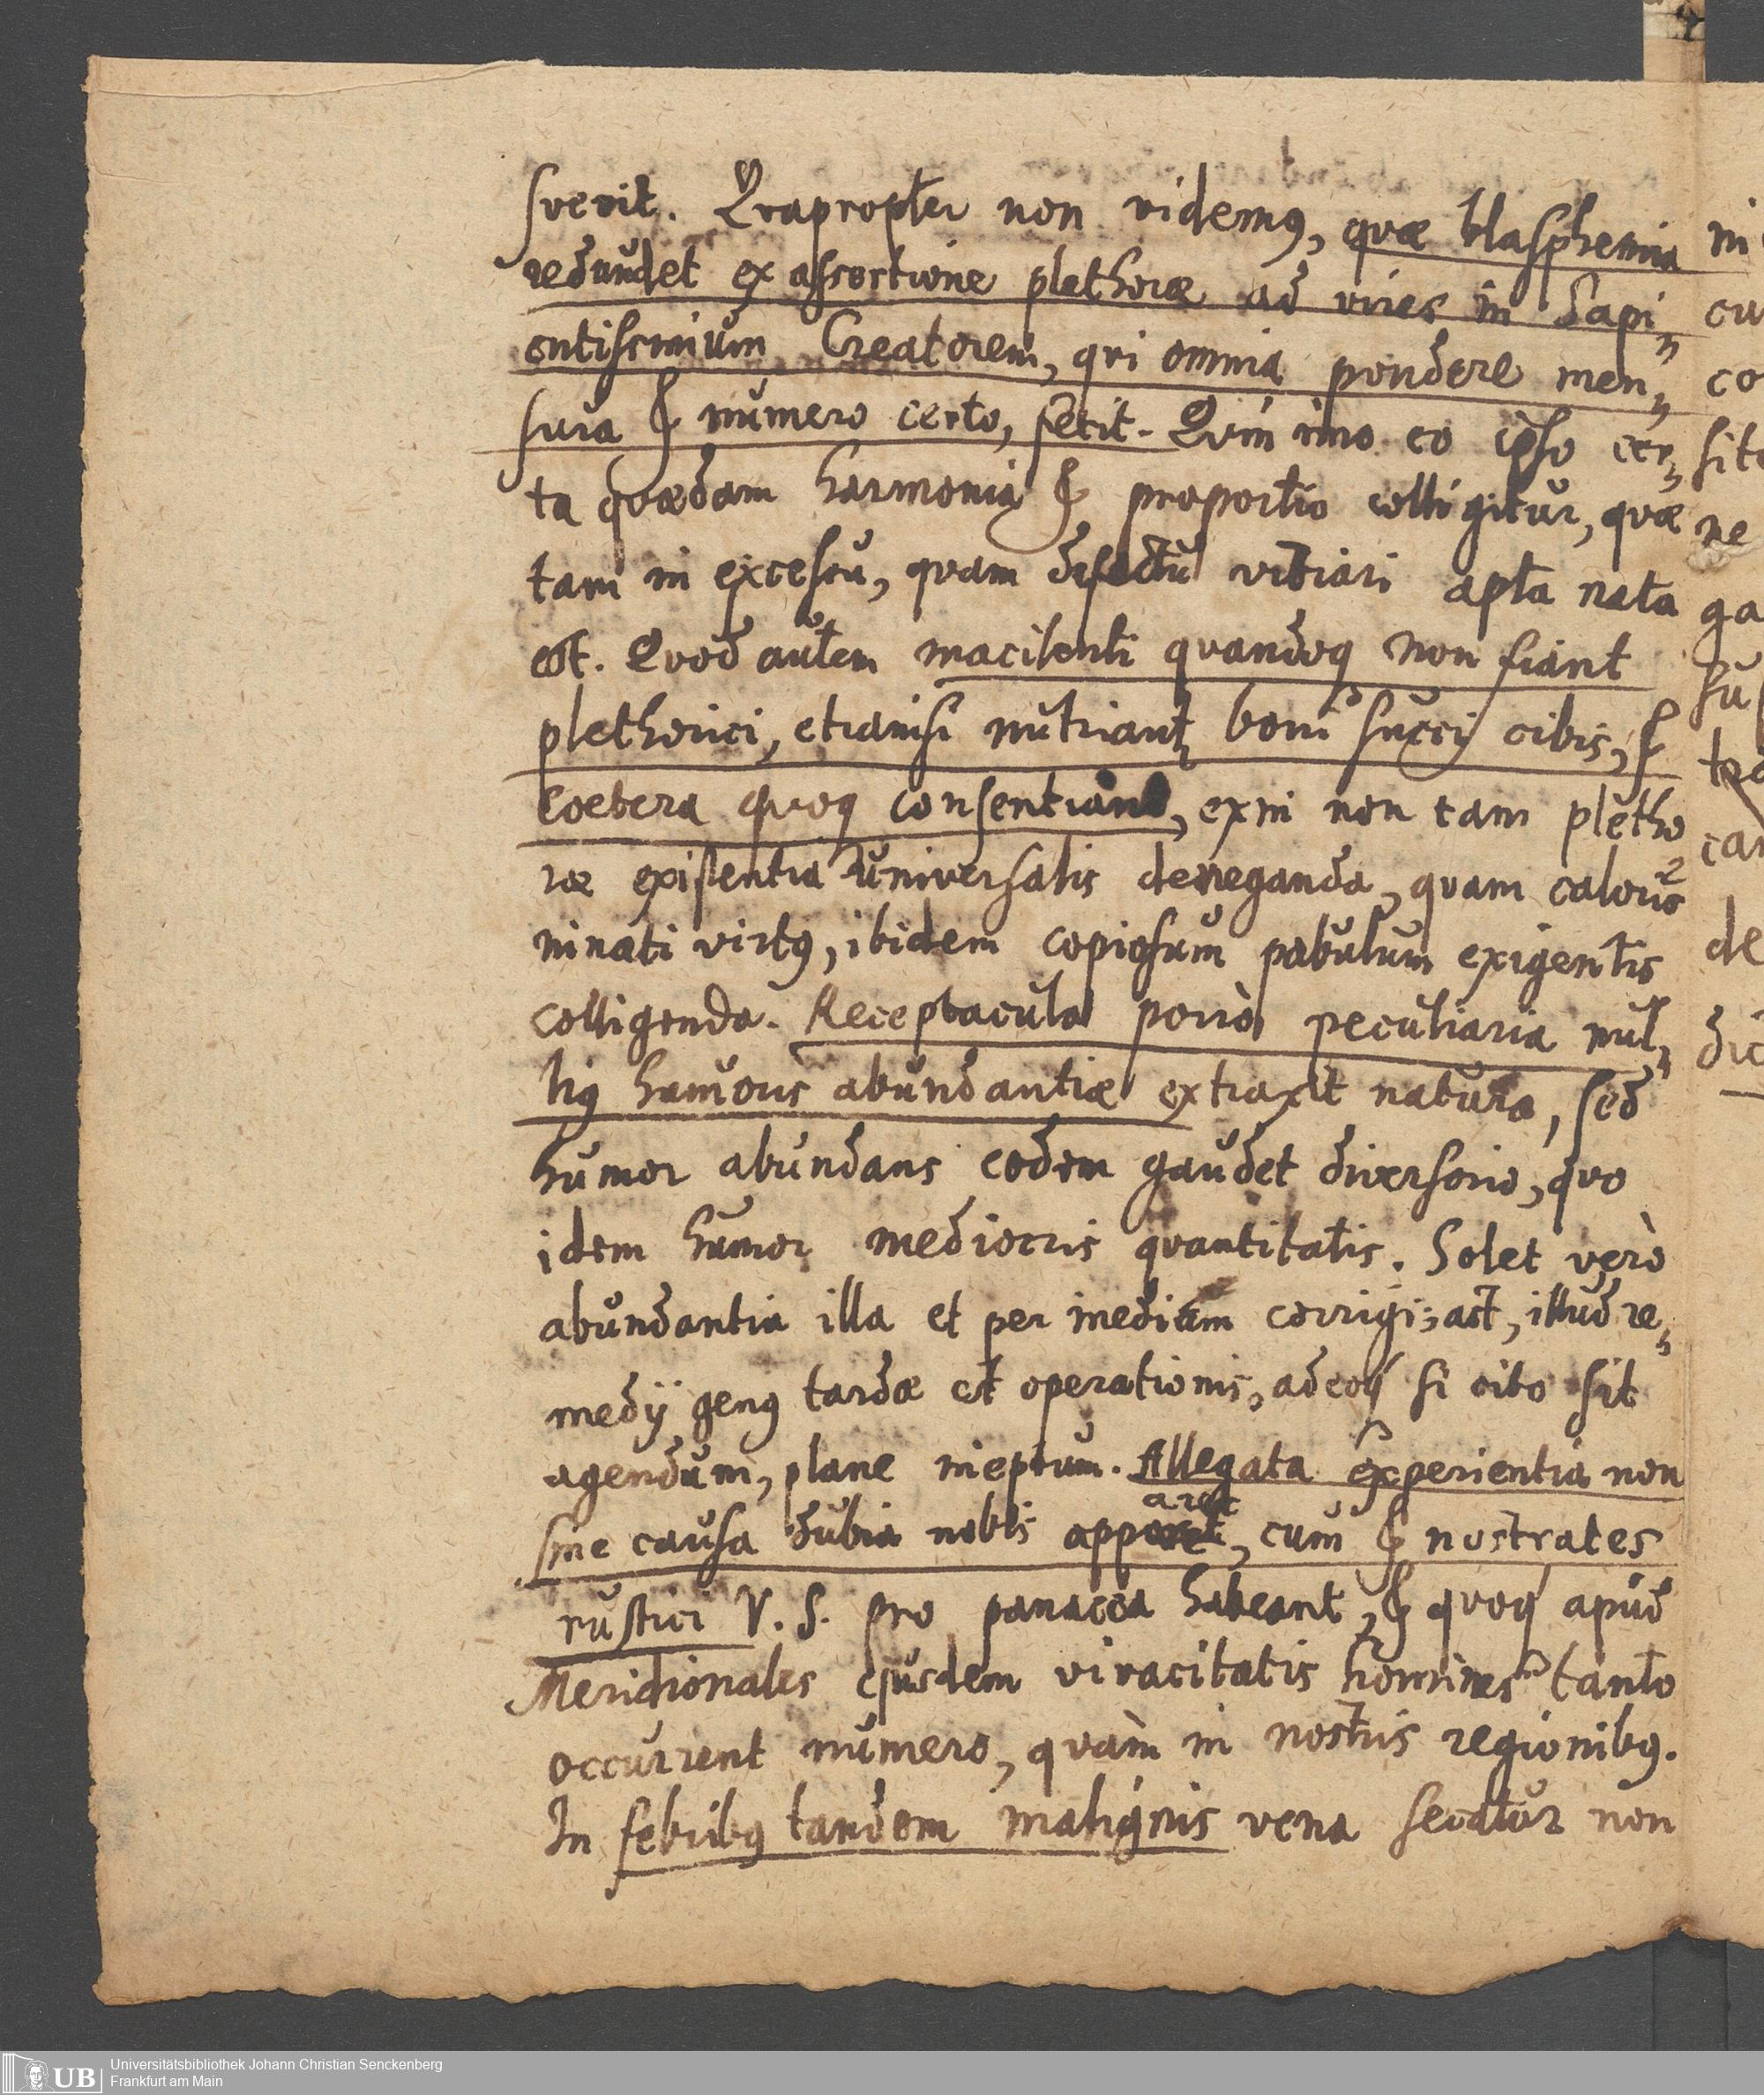 svevit. Qvapropter non videmꝰ, qvæ blasphemia
redundet ex assertione plethoræ ad vires in Sapi„
entissimum Creatorem, qvi omnia pondere men„
sura & numero certo, fecit. Qvin imo eo ipso cer„
ta qvædam harmonia & proportio colligitur, qvæ
tam in excessu, qvam defectu vitiari apta nata
est. Qvod autem macilenti qvandoq non fiant
plethorici, etiamsi nutriantꝰ boni succi cibis, &
coetera qvoq consentiant, exin non tam pletho
ræ existentia universalis deneganda, qvam caloris
innati virtꝰ, ibidem copiosum pabulum exigentis
colligenda. Receptacula porrò peculiaria nul„
liꝰ humoris abundantiæ extraxit natura, sed
humor abundans eodem gaudet diversorio, qvo
idem humor mediocris qvantitatis. Solet verò
abundantia illa et per inediam corrigi; ast, illud re„
medij genꝰ tardæ est operationis, adeoq si cito sit
agendum, plane ineptum. Allegata experientia non
sine causa dubia nobis apparet, cum & nostrates
aret
rustici V. S. pro panacea habeant, & qvoq apud
Meridionales ejusdem vivacitatis homines tanto
occurrent numero, qvàm in nostris regionibꝰ.
In febribꝰ tandem malignis vena secatur non
Universitätsbibliothek Johann Christian Senckenberg
UB Frankfurt am Main